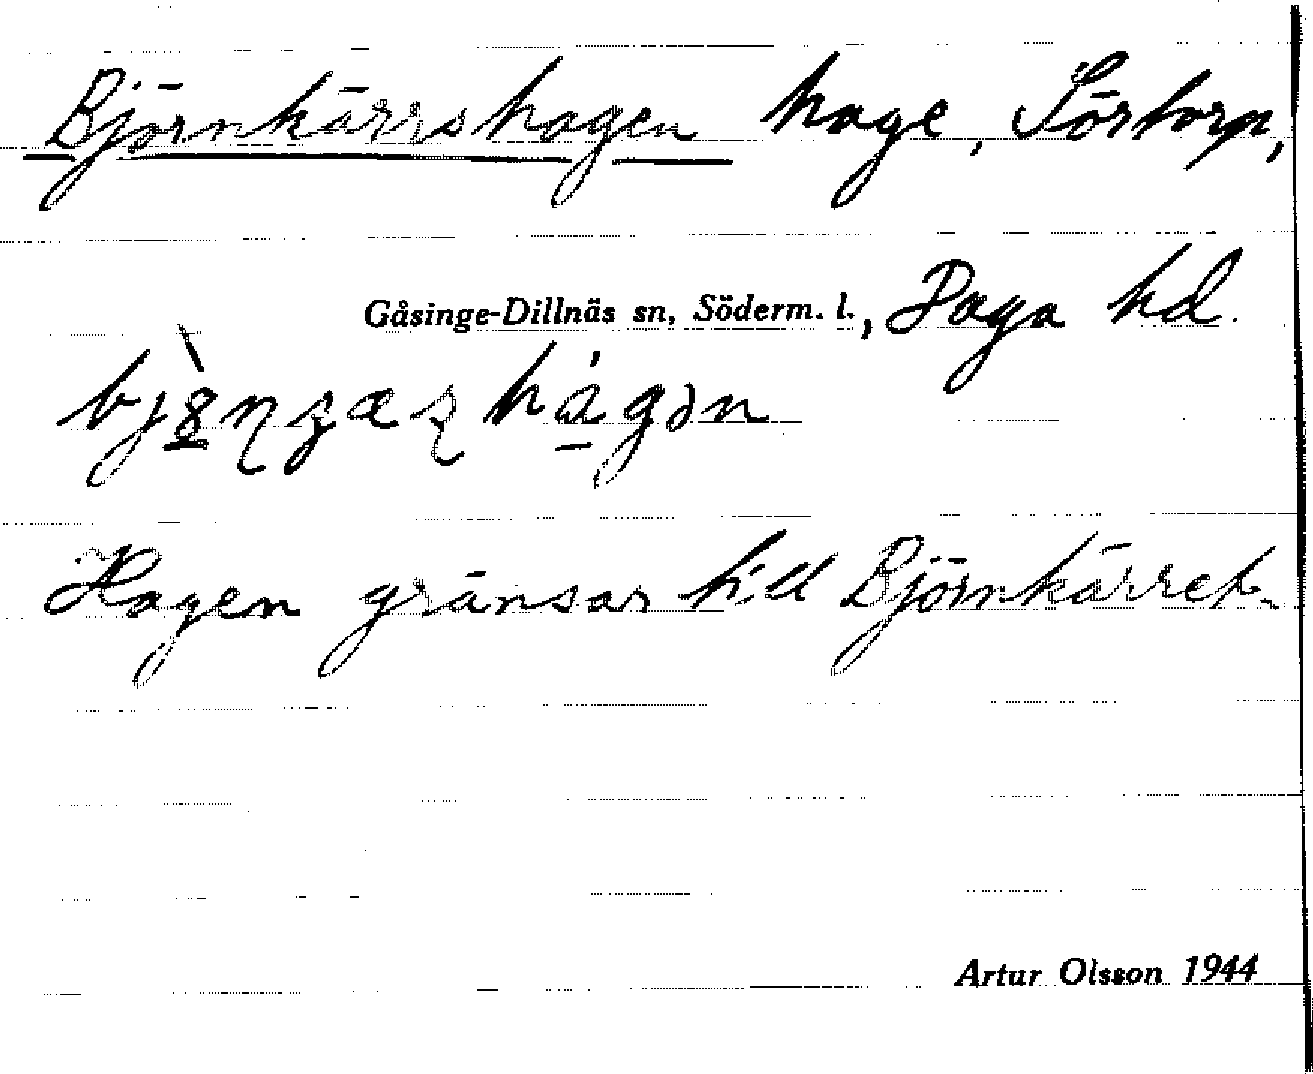 Björnkärrshagen hage, Sörtorp,
Gåsinge-Dillnäs sn, Söderm. l., Daga hd.
Hagen gränsar till Björnkärret.
Artur Olsson 1944